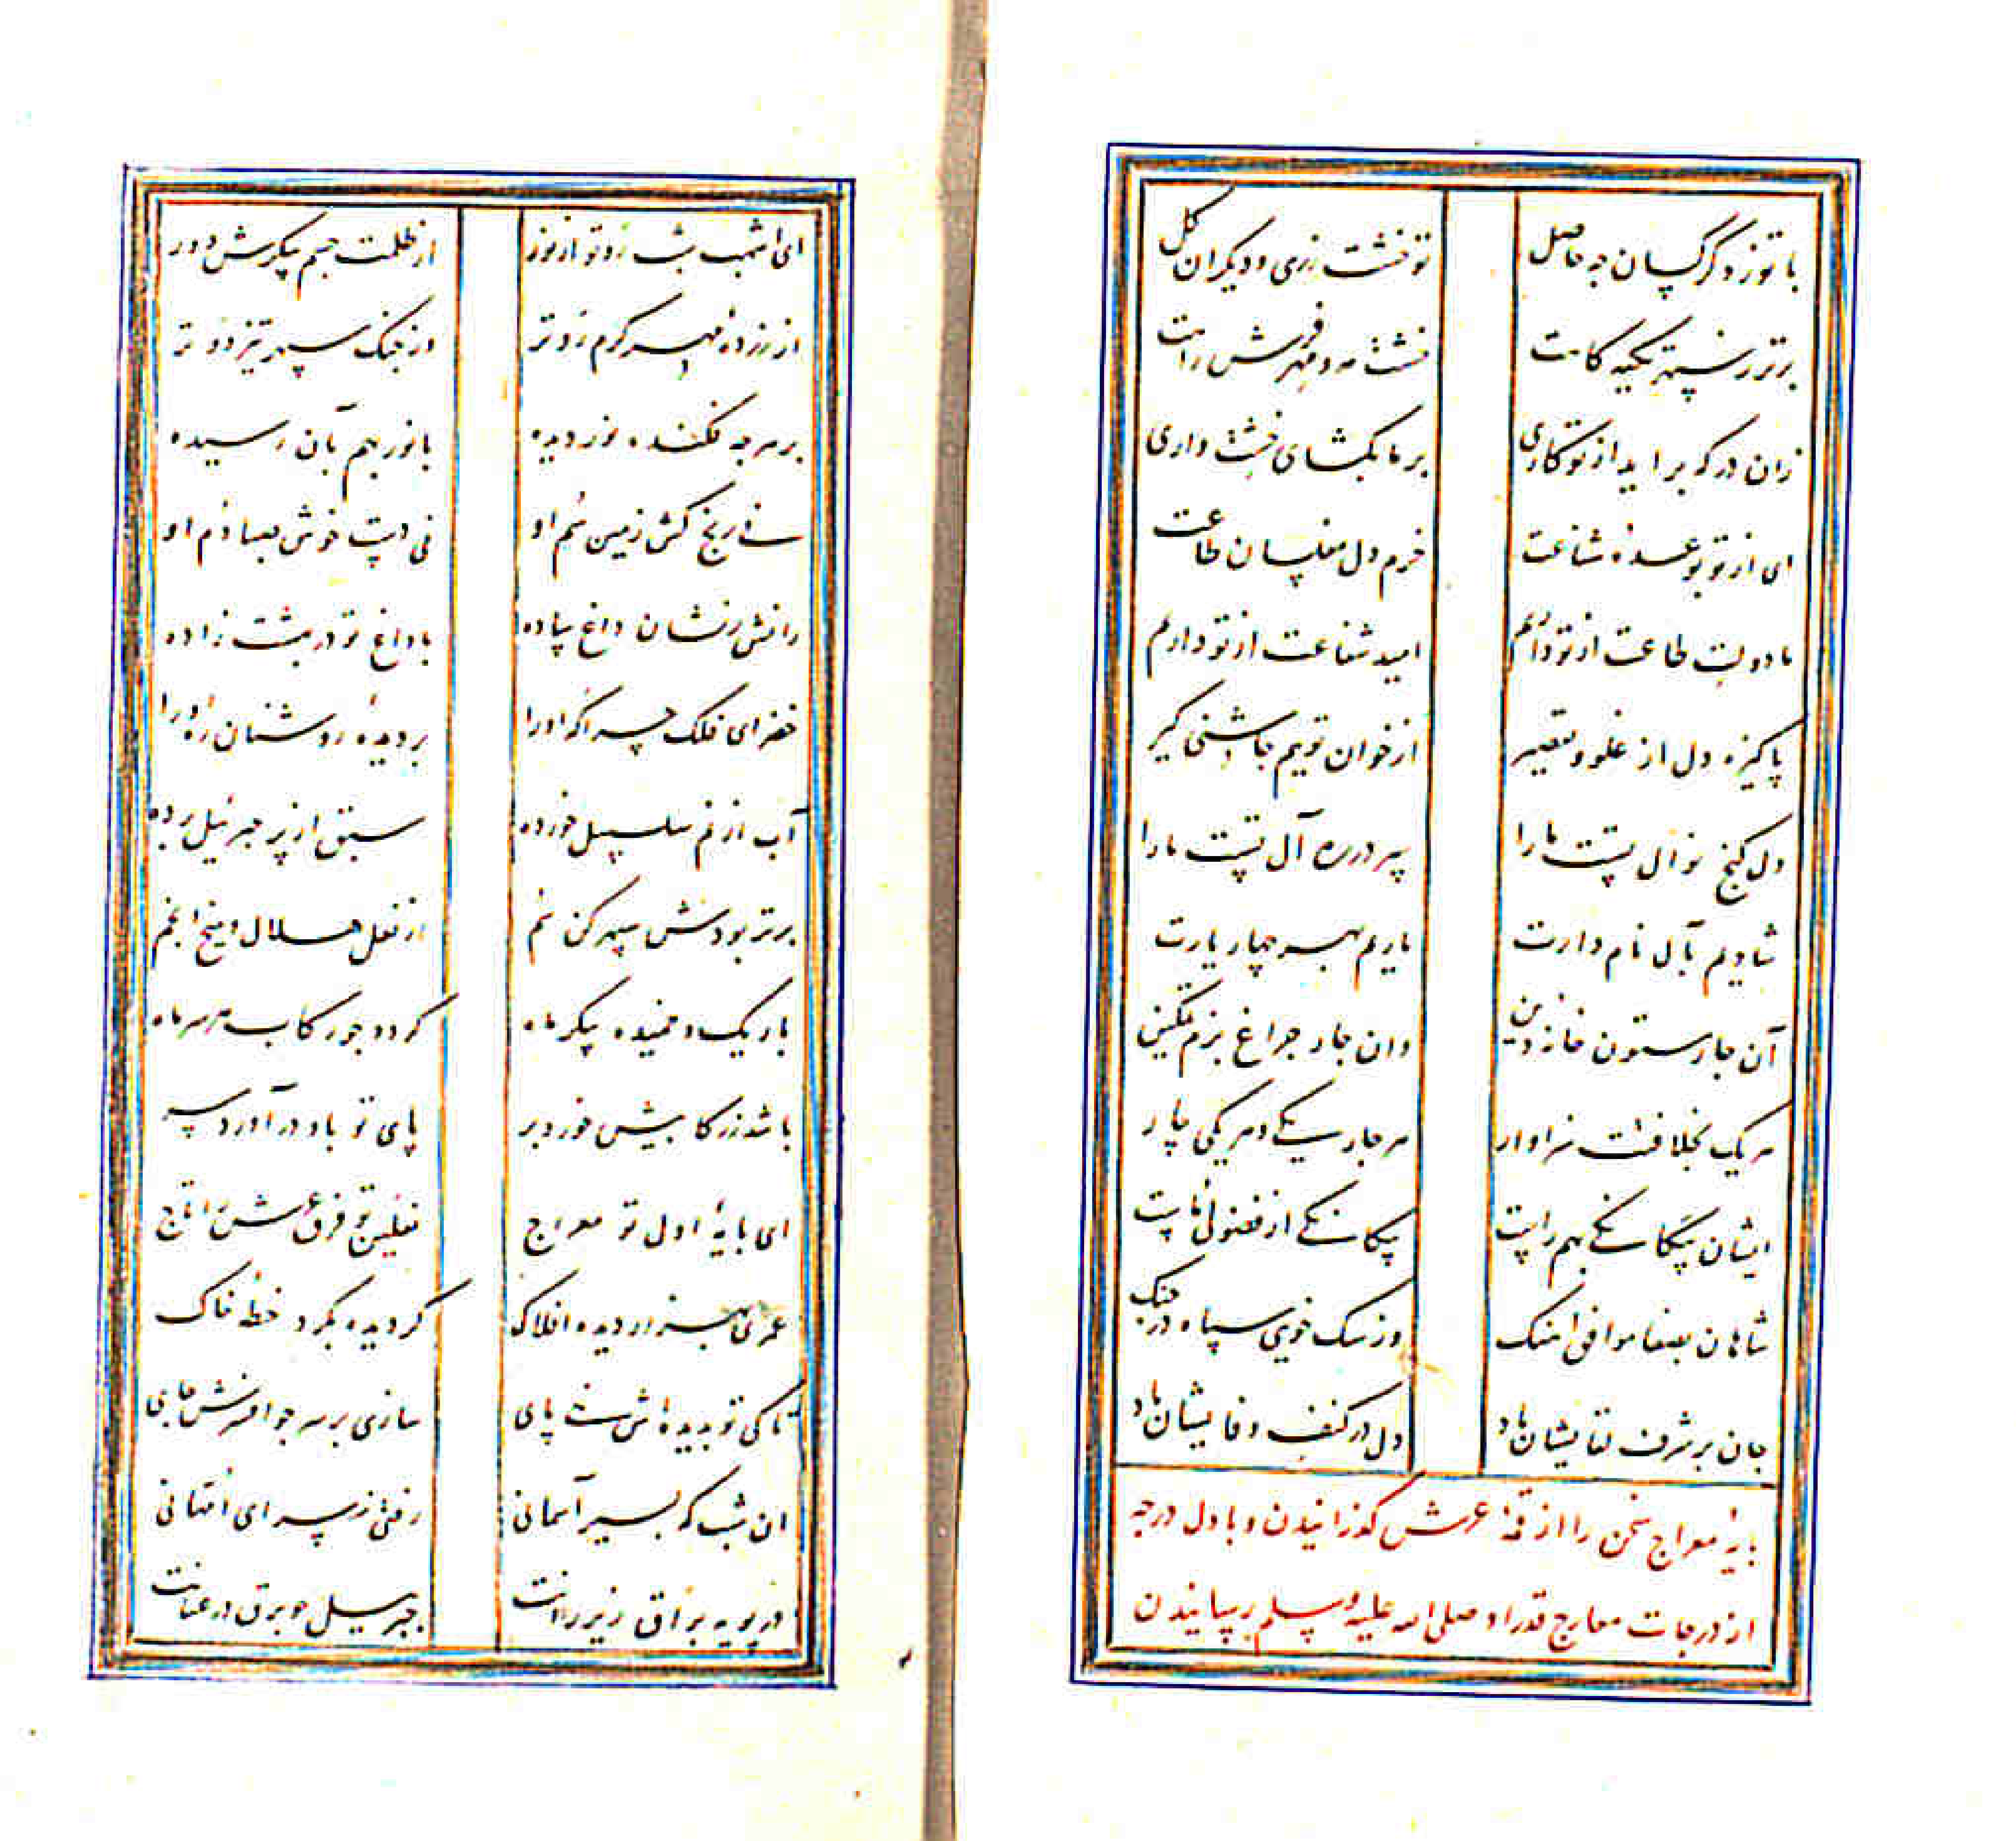 با تو ز دگر کسان چه حاصل
تو خشت زری و دیگران گل
برتر ز سپهر تکیه گاهت
خشت مه و مهر فرش راهت
زان در که براید از تو کاری
بر ما بگشای خشت واری
ای از تو بوعده شفاعت
خرم دل مفلسان طاعت
ما دولت طاعت از تو داریم
امید شفاعت از تو داریم
پاکیزه دل از غلو و تقصیر
از خوان توییم چاشنی گیر
دل گنج نوال تست ما را
پی در ره آل تست ما را
شادیم بآل نامدارت
یاریم بهر چهار یارت
آن چار ستون خانه دین
وان چار چراغ بزم تمکین
هر یک بخلافت سزاوار
هر چار یکی و هر یکی چار
ایشان بیگانگی بهم راست
بیگانگی از فضولی ماست
شاهان بصفا موافق آهنگ
وز سگ خویی سپاه در جنگ
جان بر شرف لقایشان باد
دل در کنف وفایشان باد
پایه معراج سخن را از قمه عرش گذرانیدن و با دل درجه
از درجات معارج قدر او صلی الله علیه و سلم رسانیدن
ای اشهب شب رو تو از نور
از ظلمت جسم پیکرش دور
از زرده مهر گرم رو تر
وز خنگ سپهر تیز دو تر
بر هر چه فکنده نور دیده
با نور بهم بآن رسیده
نی رنج کش زمین سم او
نی دست خوش صبا دم او
رانش ز نشان داغ ساده
با داغ تو در بهشت زاده
خضرای فلک چراگر او را
بر دیده روشنان ره او را
آب از نم سلسبیل خورده
سبق از پر جبرئیل برده
برتر بودش سپهر کن سم
از نعل هلال و میخ انجم
باریک و خمیده پیکر ماه
گردد چو رکاب هر سر ماه
باشد ز رکابیش خورد بر
پای تو باو در آورد سر
ای پایه اول تو معراج
نعلین تو فرق عرش را تاج
عمری بهزار دیده افلاک
گردیده بگرد خطه خاک
تا کی تو بدیدهاش نهی پای
سازی بر سر چو افسرش جای
ان شب که بسیر آسمانی
رفتی ز سرای ام هانی
در پویه براق زیر رانت
جبریل چو برق در عنانت